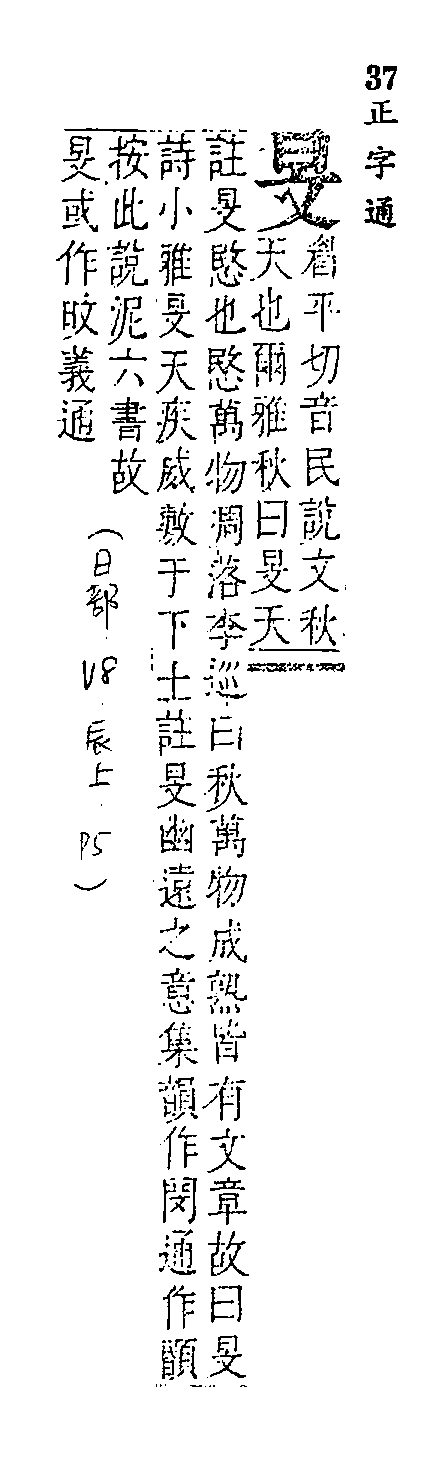 37正字通
旻
平切音民說文秋
天也爾雅秋曰旻天
註旻愍也愍萬物凋落李巡曰秋萬物成熟皆有文章故曰旻
詩小雅旻天疾威敷于下土註旻幽遠之意集韻作閔通作
按此說泥六書故
旻或作旼義通
(日部.V8.辰上.P5)